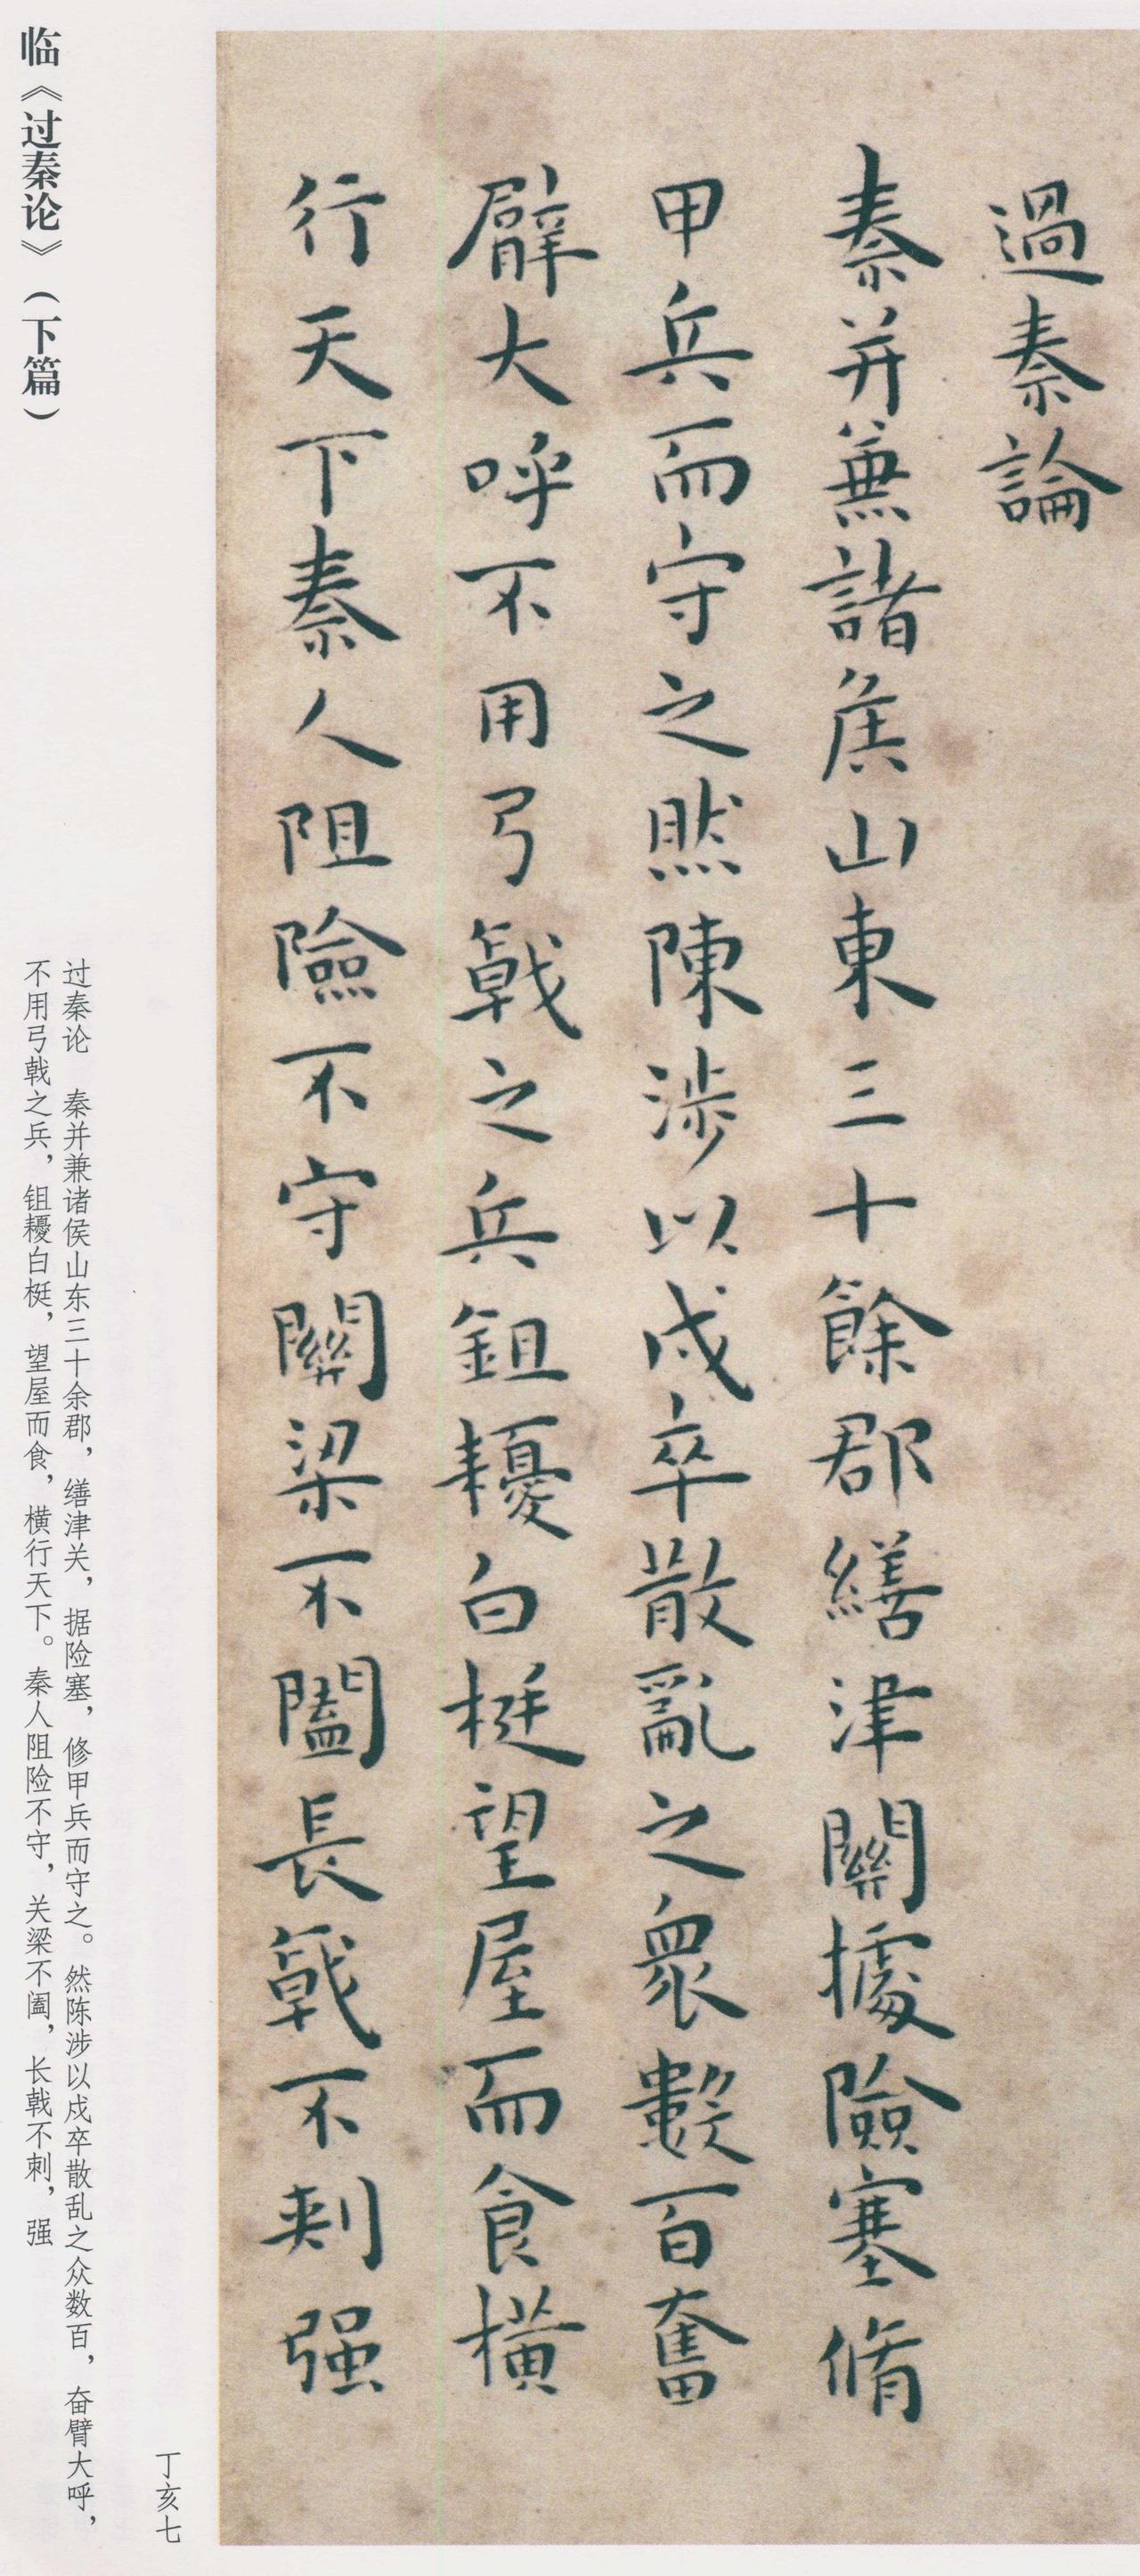 過秦論
秦并兼諸侯山東三十餘郡繕津關據險塞脩
甲兵而守之然陳涉以戍卒散亂之衆數百奮
臂大呼不用弓戟之兵鉏耰白梃望屋而食橫
行天下秦人阻險不守關梁不闔長戟不刺强
丁亥七
过秦论 秦并兼诸侯山东三十余郡，缮津关，据险塞，修甲兵而守之。然陈涉以戍卒散乱之众数百，奋臂大呼，
不用弓戟之兵，鉏耰白梃，望屋而食，横行天下。秦人阻险不守，关梁不阖，长戟不刺，强
临《过秦论》（下篇）